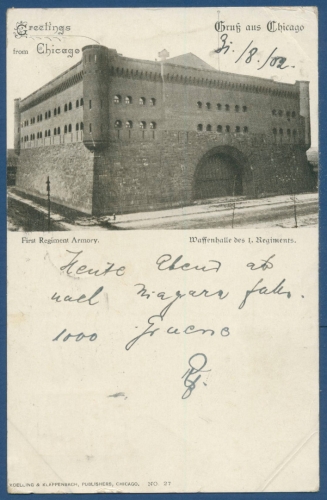 Greetings from Chicago
Gruß aus Chicago
31./8./02.
First Regiment Armory.
Waffenhalle des 1. Regiments.
Heute Abend ab
nach Niagara falls.
1000 Gruesse
KOELLING & KLAPPENBACH, PUBLISHERS, CHICAGO. NO. 27